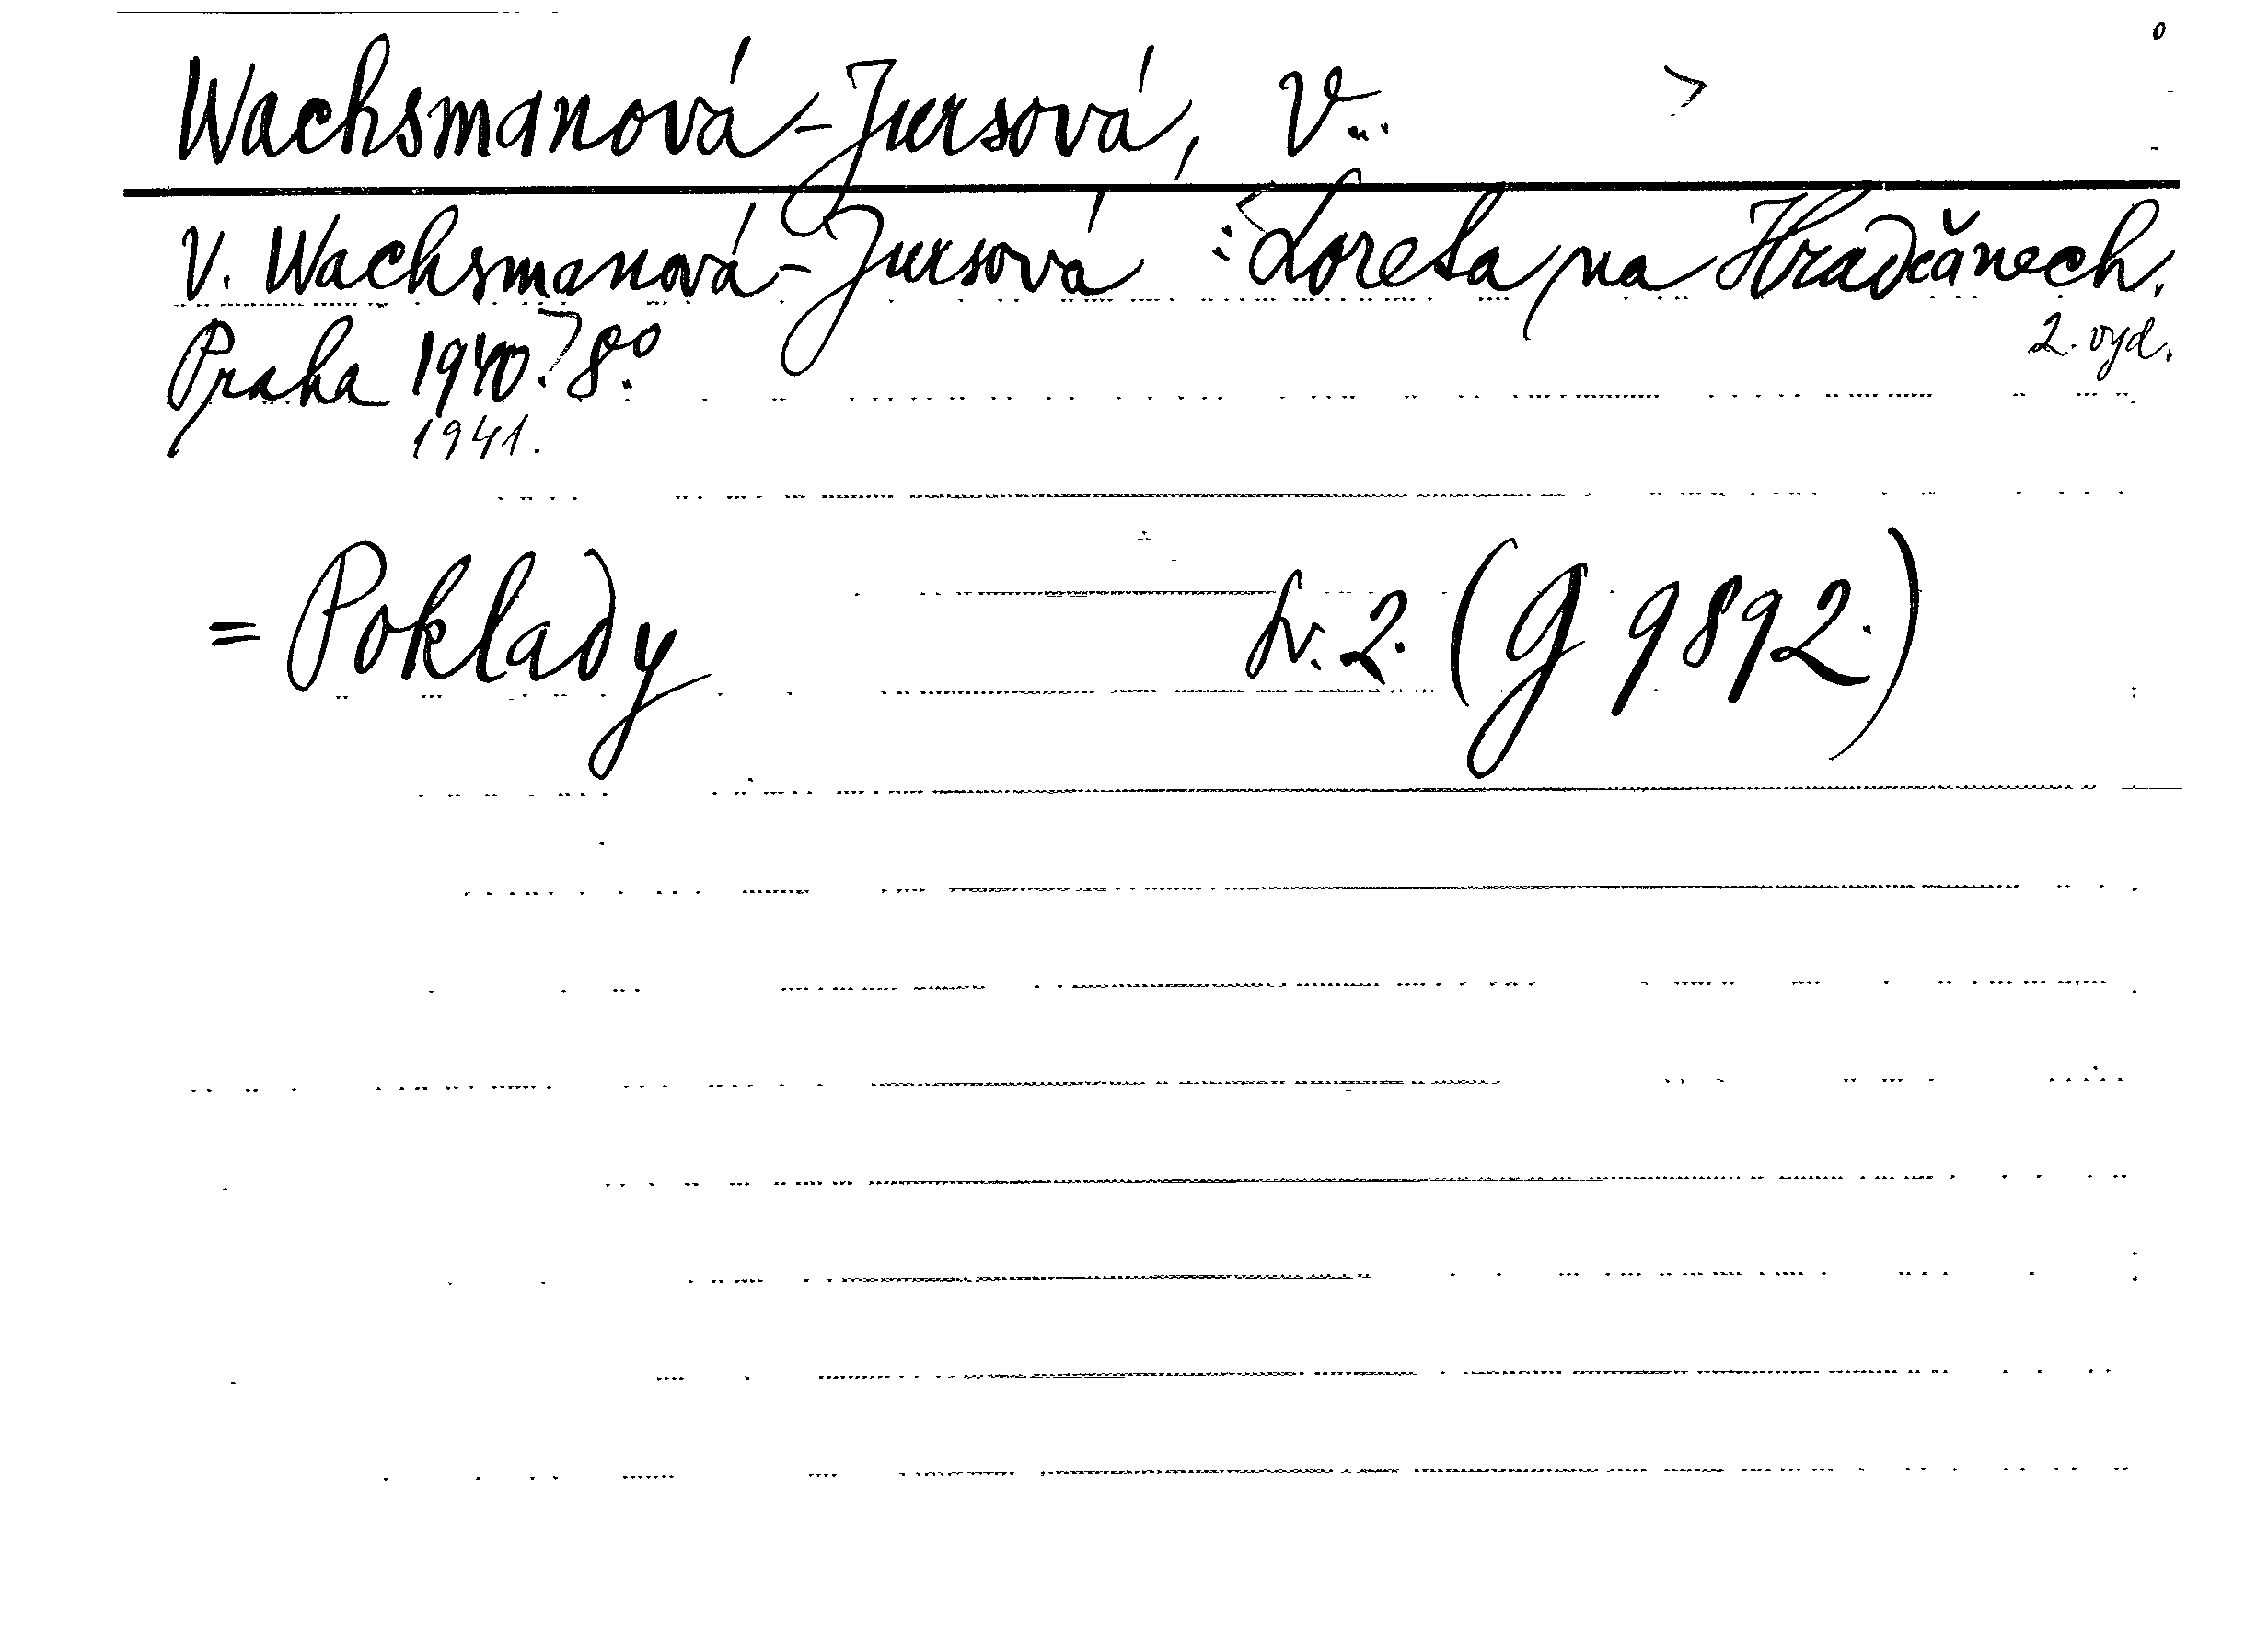 Wachsmanová-Jursová, V...
V. Wachsmanová-Jursová : Loreta na Hradčanech.
2. vyd.
Praha 1940. 8°.
1941.
= Poklady sv. 2. (G 9892.)